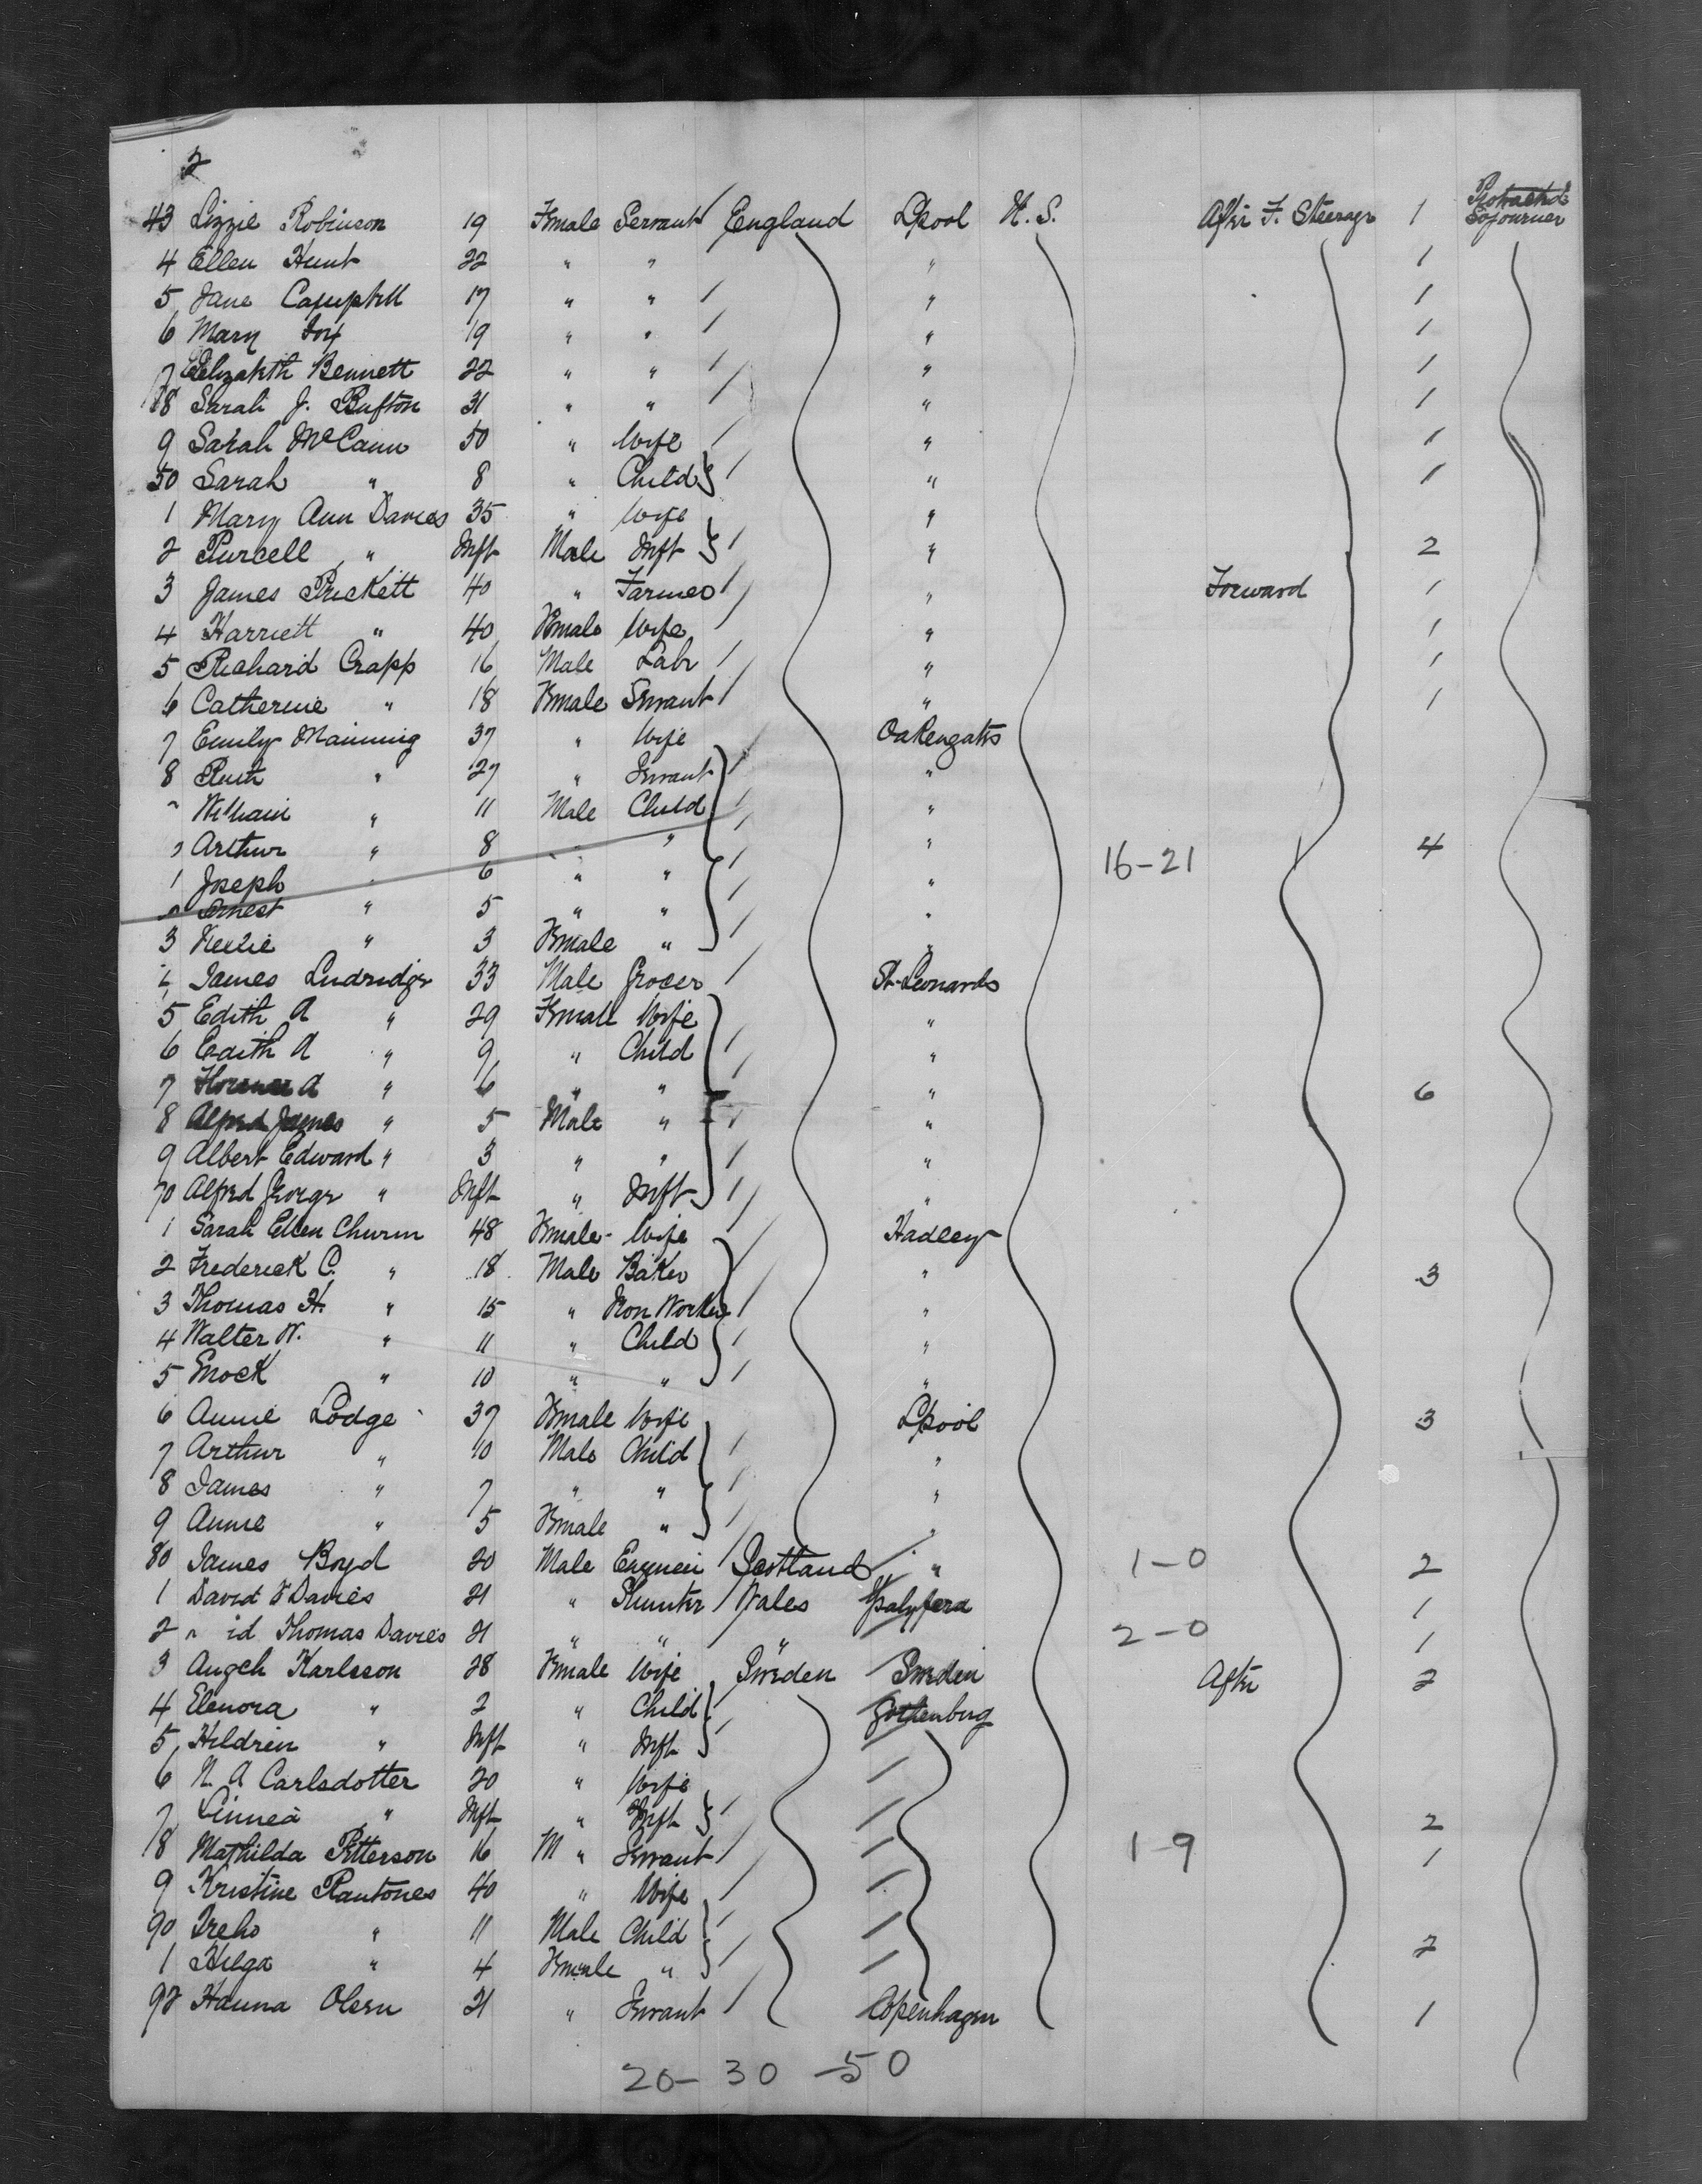 2
43 Lizzie Robinson 19 Female Servant England Lpool U.S. After F. Steerage 1 Protracted Sojourner
4 Ellen Hunt 22 " " " 1
5 Jane Campbell 17 " " " 1
6 Mary Fox 19 " " " 1
7 Elizabeth Bennett 22 " " " 1
48 Sarah J. Bufton 31 " " " 1
9 Sarah McCann 50 " Wife " 1
50 Sarah " 8 " Child " 1
1 Mary Ann Davies 35 " Wife "
2 Purcell " Inft Male Inft " 2
3 James Prickett 40 " Farmer " Forward 1
4 Harriett " 40 Female Wife " 1
5 Richard Crapp 16 Male Labr " 1
6 Catherine " 18 Female Servant " 1
7 Emily Manning 37 " Wife Oakengates
8 Ruth " 27 " Servant "
William " 11 Male Child "
Arthur " 8 " " " 16-21 4
1 Joseph " 6 " " "
Ernest " 5 " " "
3 " 3 Female " "
4 James 33 Male Grocer St. Leonards
5 Edith A " 29 Female Wife "
6 Edith A " 9 " Child "
7 Florence A " 6 " " " 6
8 Alfred James " 5 Male " "
9 Albert Edward " 3 " " "
70 Alfred George " Inft " Inft "
1 Sarah Ellen Churm 48 Female Wife Hadley
2 Frederick C. " 18 Male Baker " 3
3 Thomas H. " 15 " Iron Worker "
4 Walter W. " 11 " Child "
5 Enock " 10 " " "
6 Annie Lodge 37 Female Wife Lpool 3
7 Arthur " 10 Male Child "
8 James " 7 " " "
9 Annie " 5 Female " "
80 James Boyd 20 Male Engineer Scotland " 1-0 2
1 David Davies 21 " Wales 1
2 " id Thomas Davies 21 " " " 2-0 1
3 Karlsson 28 Female Wife Sweden Sweden After 2
4 Elenora " 2 " Child Gothenburg
5 " Inft " Inft
6 N. A Carlsdotter 20 " Wife
7 Linnea " Inft " Inft 2
8 Mathilda Petterson 16 M " Servant 1-9 1
9 Kristine 40 " Wife
90 " 11 Male Child
1 Helga " 4 Female " 2
92 Hanna Olsen 21 " Servant Copenhagen 1
20-30-50